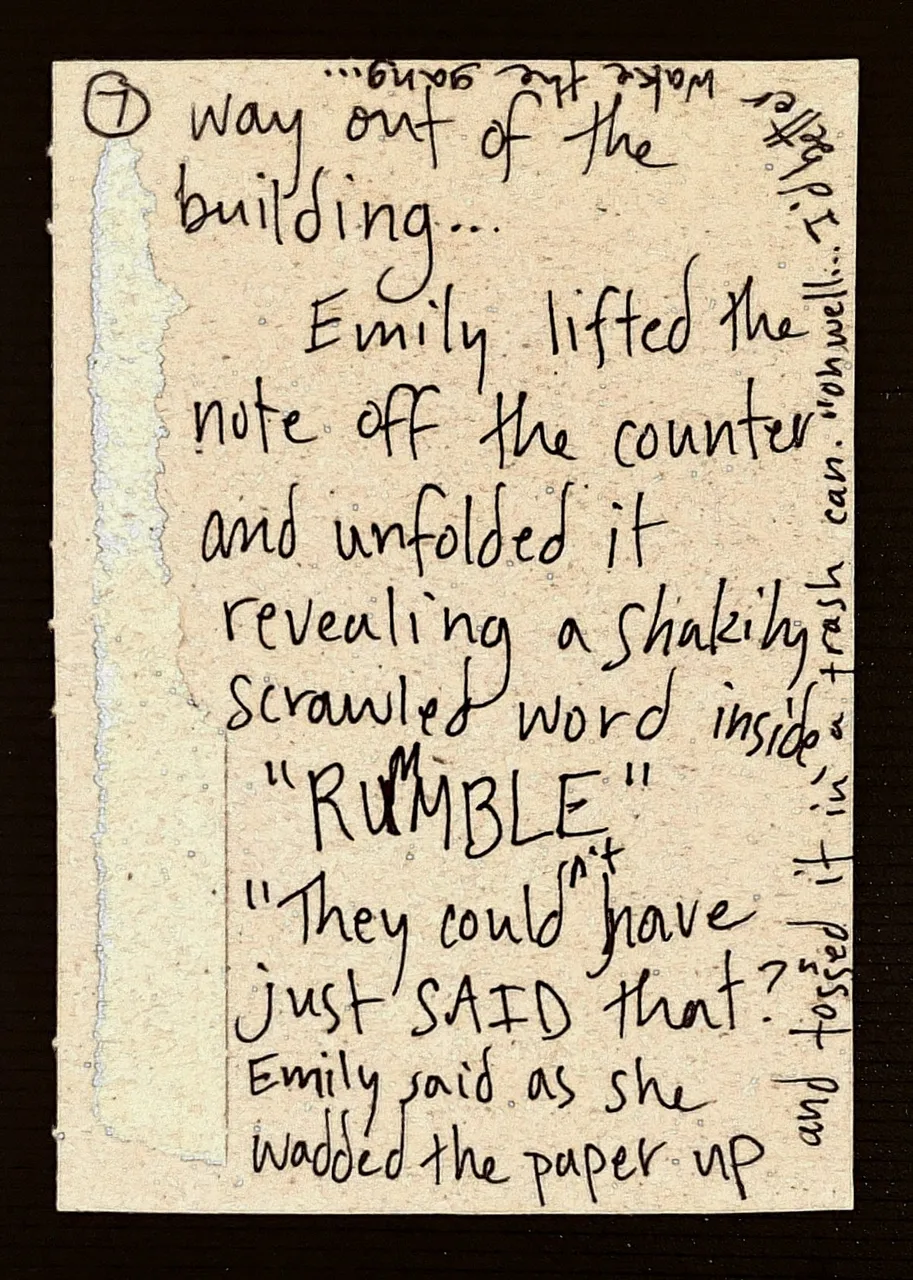 7
way out of the
building...
Emily lifted the
note off the counter
and unfolded it
revealing a shakily
scrawled word inside,
"RUMMBLE"
"They couldn't have
just SAID that?"
Emily said as she
wadded the paper up
and tossed it in a trash can. "oh well... I'd better
wake the gang...